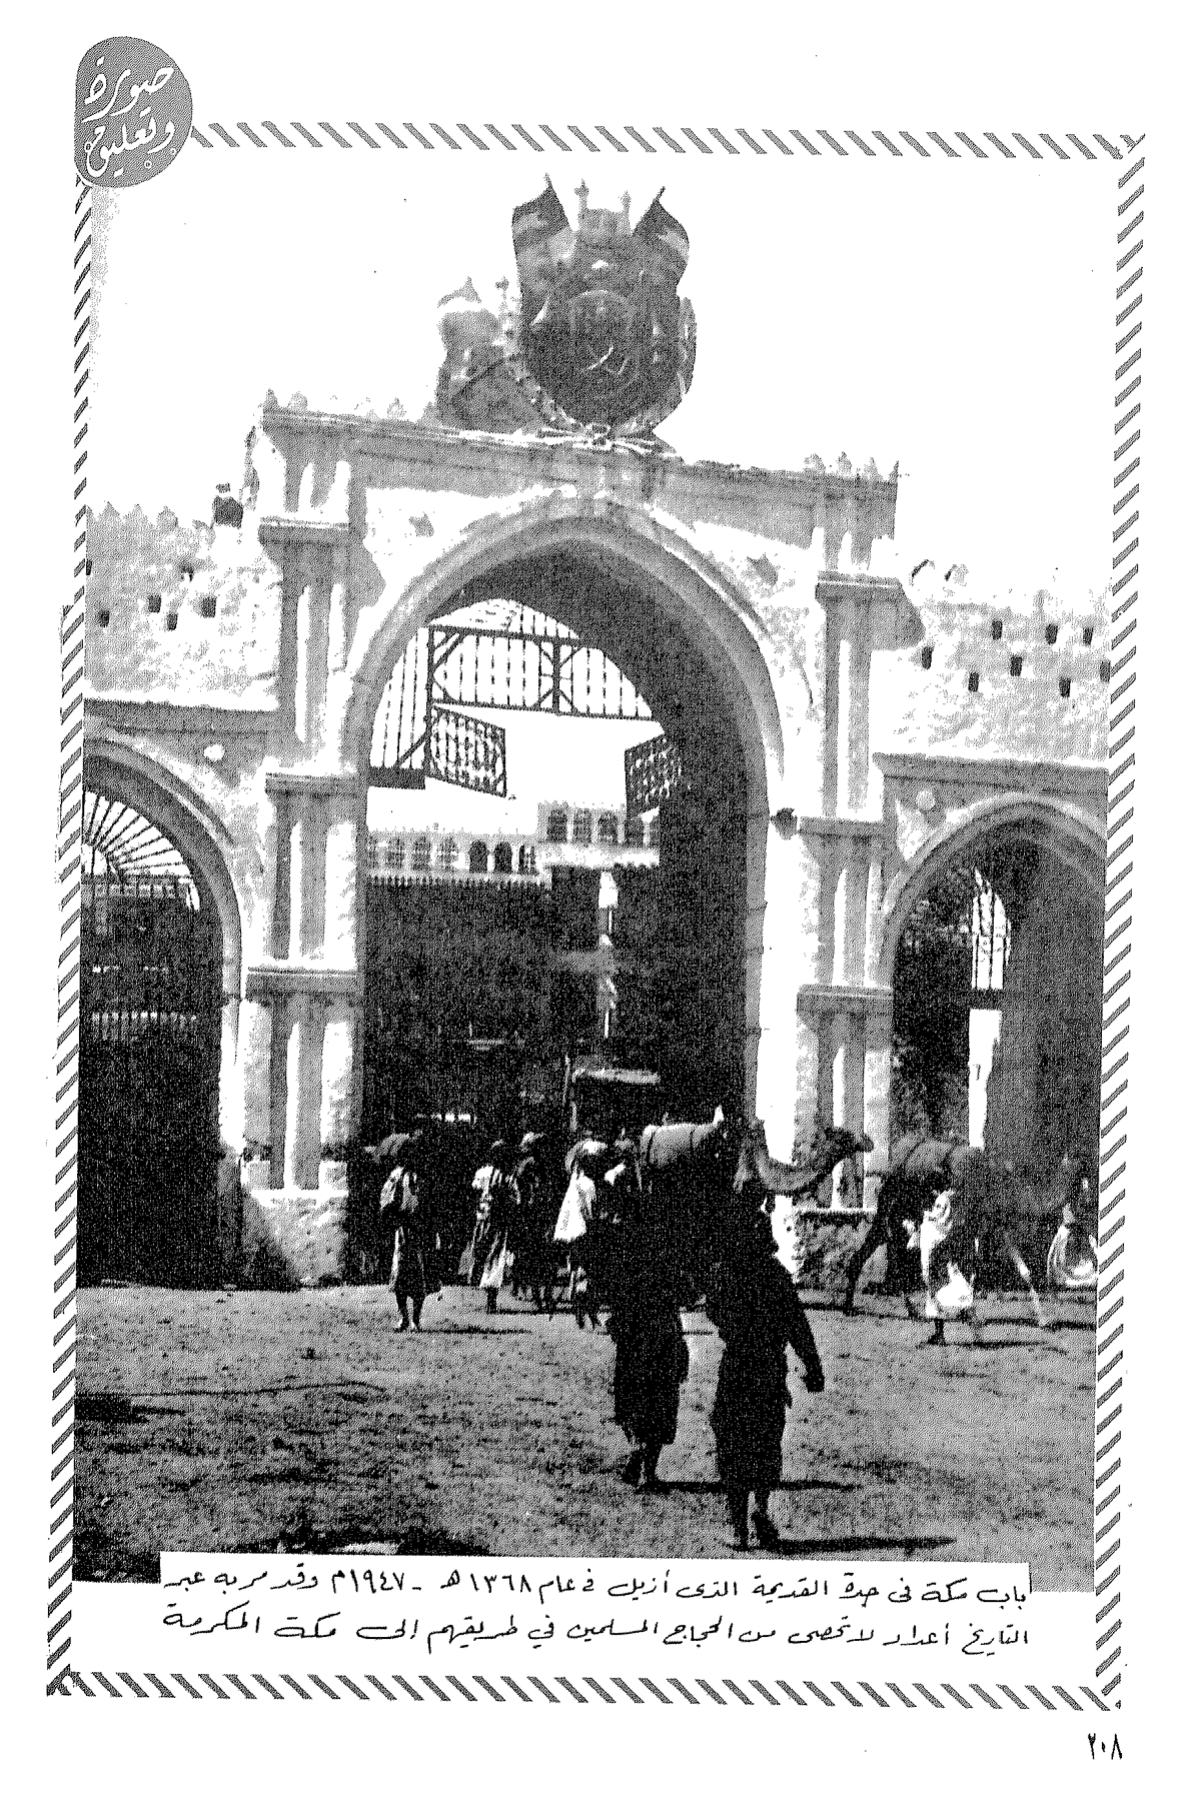 صورة
وتعليق
باب مكة فى جدة القديمة الذى أزيل فى عام ١٣٦٨ هـ - ١٩٤٧م وقد مر به عبر
التاريخ أعداد لا تحصى من الحجاج المسلمين في طريقهم إلى مكة المكرمة
٢٠٨